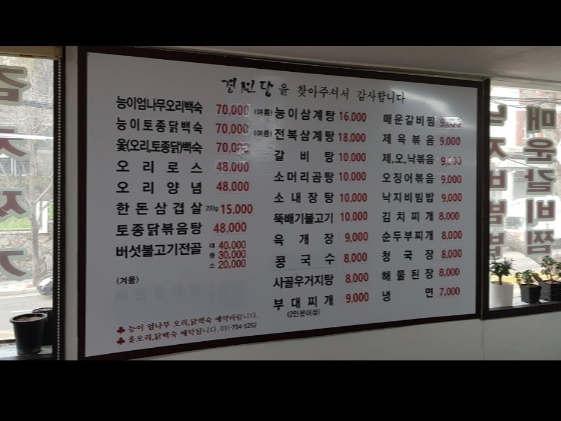 경진당을 찾아주셔서 감사합니다
능이엄나무오리백숙 70,000
능이토종닭백숙 70,000
옻(오리,토종닭)백숙 70,000
오리로스 48,000
오리양념 48,000
한돈삼겹살 200g 15,000
토종닭볶음탕 48,000
버섯불고기전골 대 40,000
중 30,000
소 20,000
(겨울)
(여름) 능이삼계탕 16,000
(여름) 전복삼계탕 18,000
갈비탕 10,000
소머리곰탕 10,000
소내장탕 10,000
뚝배기불고기 10,000
육개장 9,000
콩국수 8,000
사골우거지탕 8,000
부대찌개 9,000
(2인분이상)
매운갈비찜 9,000
제육볶음 9,000
제,오,낙볶음 9,000
오징어볶음 9,000
낙지비빔밥 9,000
김치찌개 8,000
순두부찌개 8,000
청국장 8,000
해물된장 8,000
냉면 7,000
능이 엄나무 오리,닭백숙 예약바랍니다.
옻오리,닭백숙 예약됩니다. 031-754-5252
매운갈비찜
낙지비빔밥